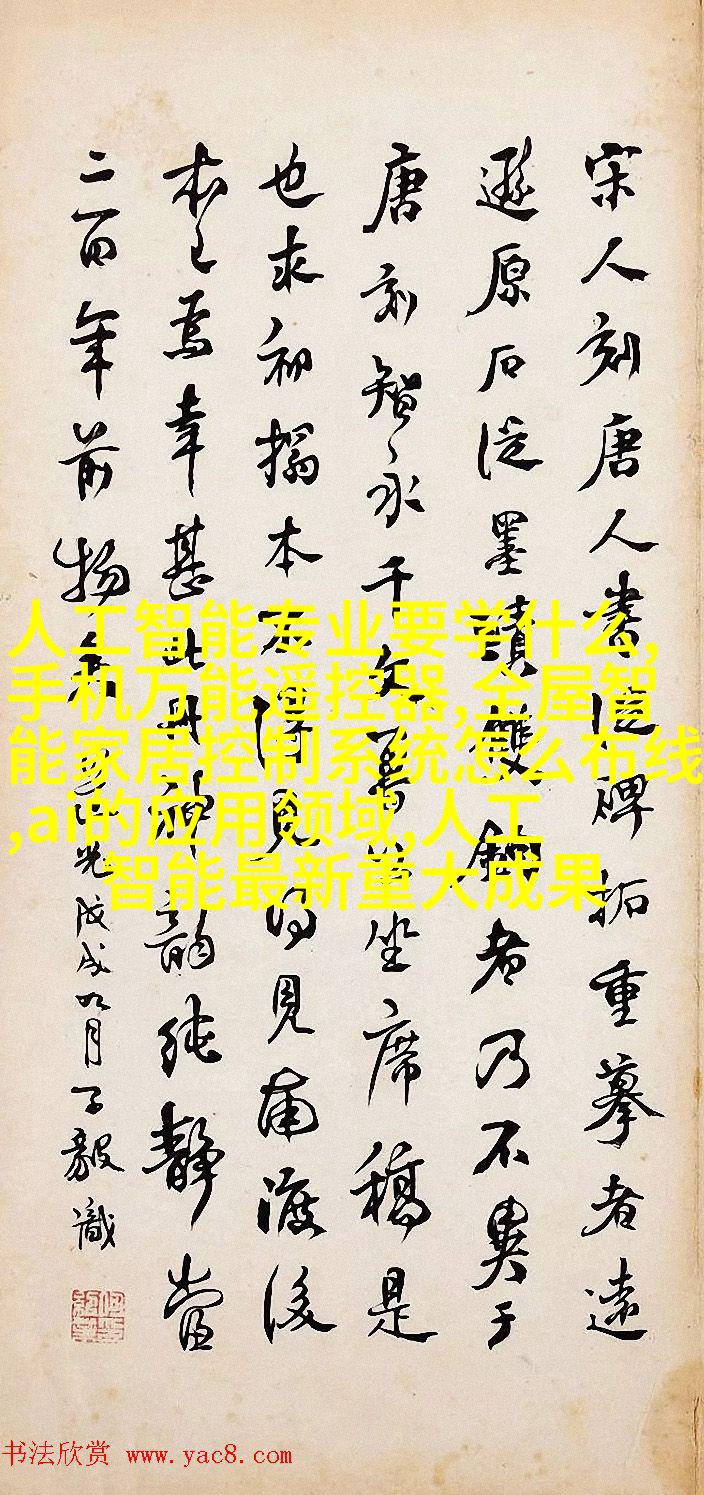 宋人刻唐人書從碑拓重摹者遠
遜原石從墨蹟雙鉤者乃不異于
唐刻智永千文薯坐席稿是
也求初搨本不得見得見南渡後
本已焉幸甚此冊神韵純靜當
二百年前物
光戊戌九月子毅識
人工智能专业要学什么,
手机万能遥控器,全屋智
能家居控制系统怎么布线
,ai的应用领域,人工
智能最新重大成果
书法欣赏 www.yac8.com